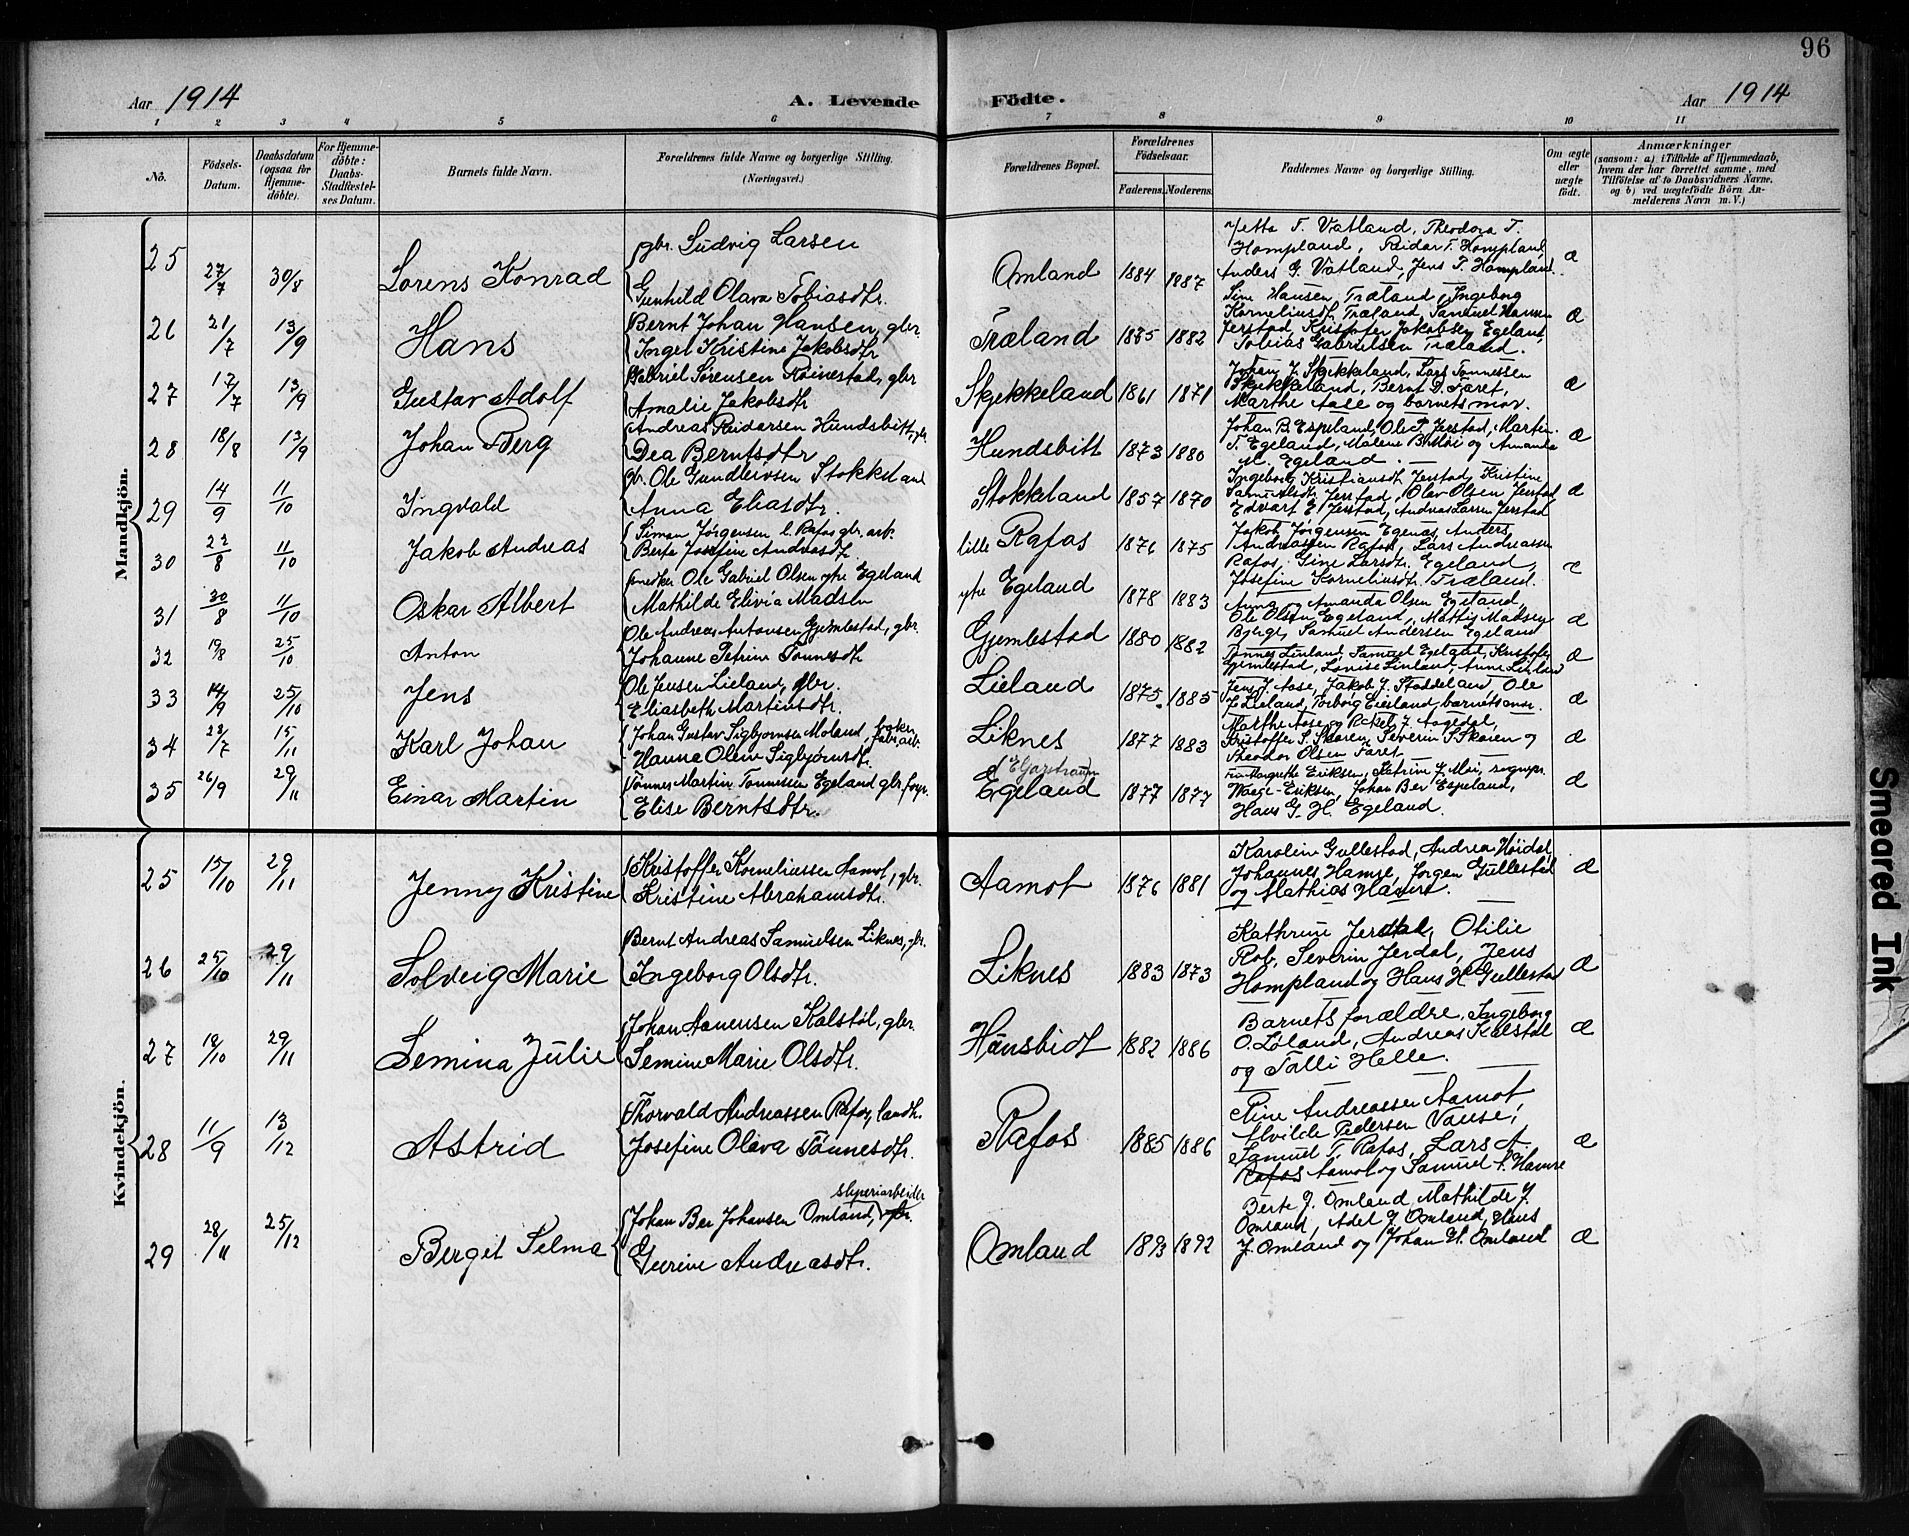 96
Aar 1914
A. Levende
Födte.
Aar 1914
1 2 3 4 5 6 7 8 9 10 11
No.
Födsels-
Datum.
Daabsdatum
(ogsaa for
Hjemme-
döbte).
For Hjemme-
döbte:
Daabs-
Stadfæstel-
ses Datum.
Barnets fulde Navn.
Forældrenes fulde Navne og borgerlige Stilling.
(Næringsvei.)
Forældrenes Bopæl.
Forældrenes
Födselsaar.
Faderens. Moderens.
Faddernes Navne og borgerlige Stilling.
Om ægte
eller
uægte
födt.
Anmærkninger
(saasom: a) i Tilfælde af Hjemmedaab,
hvem der har forrettet samme, med
Tilföielse af to Daabsvidners Navne,
og b) ved uægtefödte Börn An-
melderens Navn m. V.)
Mandkjön.
25 27/7 30/8 Lorens Konrad
gbr. Ludvig Larsen
Gunhild Olava Tobiasdtr.
Omland 1884 1887
T. Vatland, Theodora T.
Hompland, Reidar T. Hompland,
Anders G. Vatland, Jens T. Hompland.
æ
26 21/7 13/9 Hans
Bernt Johan Hansen, gbr.
Inger Kristine Jakobsdtr
Træland 1885 1882
Sine Hansen Træland, Ingeborg
Korneliusdtr Træland, Samuel Hansen
Jerstad, Kristoffer Jakobsen Egeland,
Tobias Gabrielsen Træland.
æ
27 17/7 13/9 Gustav Adolf
Gabriel Sørensen Røinestad, gbr
Amalie Jakobsdtr
Skjekkeland 1861 1871
Johan J. Skjekkeland, Lars Tønnessen
Skjekkeland, Bernt D. Faret,
Marthe Aase og barnets mor.
æ
28 18/8 13/9 Johan Berg
Andreas Reidarsen Hundsbitt, gbr
Dea Berntsdtr
Hundsbitt 1873 1880
Johan B Espeland, Ole T Jerstad, Martin
T. Egeland, Malene og Amanda
M. Egeland.
æ
29 14/9 11/10 Ingvald
gbr. Ole Gundleivsen Stokkeland
Anna Eliasdtr.
Stokkeland 1857 1870
Ingeborg Kristiansdtr Jerstad, Kristine
Samuelsdtr Jerstad, Olav Olsen Jerstad
Edvart E. Jerstad, Andreas Larsen Jerstad
æ
30 22/8 11/10 Jakob Andreas
Simon Jørgensen l. Rafos gbr. arb.
Berte Josefine Andreasdtr.
lille Rafos 1876 1875
Jakob Jørgensen Egenes, Anders
Andreassen Rafos, Lars Andreassen
Rafos, Gine Larsdtr. Egeland,
Josefine Korneliusdtr. Træland.
æ
31 30/8 11/10 Oskar Albert
snedker Ole Gabriel Olsen ytre Egeland
Mathilde Elivia Madsen
ytre Egeland 1878 1883
Anna og Amanda Olsen Egeland,
Ole Olsen Egeland, Mattis Madsen
Bjerge, Samuel Andersen Egeland
æ
32 19/8 25/10 Anton
Ole Andreas Antonsen Gjemlestad, gbr.
Johanne Petrine Tønnesdtr
Gjemlestad 1880 1882
Tønnes Linland, Samuel Egeland, Kristoffer
Gjemlestad, Lovise Linland, Anne Linland
æ
33 14/9 25/10 Jens
Ole Jensen Lieland, gbr.
Eliasbeth Martinsdtr.
Lieland 1875 1885
Jens J. Aase, Jakob J. Staddeland, Ole
J. Lieland, Torborg Eieland, barnets mor.
æ
34 23/7 15/11 Karl Johan
Johan Gustav Sigbjørnsen Moland,
Hanna Oline Sigbjørnsdtr.
Liknes 1877 1883
Marthe Aase og Rakel J. Aagedal,
Kristoffer S. Skøren, Severin S Skøren og
Theodor Olsen Faret
æ
35 26/9 29/11 Einar Martin
Tønnes Martin Tønnesen Egeland gbr,
Elise Berntsdtr.
Egeland 1877 1877
Fru Margrethe Eriksen, Katrine J. Moi, sognepr.
Waage-Eriksen, Johan Ber Espeland,
Hans G. H. Egeland.
æ
Kvindekjön.
25 15/10 29/11 Jenny Kristine
Kristoffer Korneliussen Aamot, gbr.
Kristine Abrahamsdtr.
Aamot 1876 1881
Karoline Gullestad, Andrea Høidal,
Johannes Hamre, Jørgen Gullestad
og Mathias Hamre.
æ
26 25/10 29/11 Solveig Marie
Bernt Andreas Samuelsen Liknes, gbr.
Ingeborg Olsdtr.
Liknes 1883 1873
Kathrine Jerdal, Otilie
Rob, Severin Jerdal, Jens
Hompland og Hans H Gullestad
æ
27 18/10 29/11 Semina Julie
Johan Aanensen Kalstøl, gbr.
Semine Marie Olsdtr.
Hünsbidt 1882 1886
Barnets forældre, Ingeborg
O. Løland, Andreas Kalstøl
og Talli Helle.
æ
28 11/9 13/12 Astrid
Thorvald Andreassen Rafos, landh.
Josefine Olava Tønnesdtr.
Rafos 1885 1886
Andreassen Aamot
Alvilde Pedersen Vanse,
Samuel T. Rafos, Lars A.
Rafos Aamot og Samuel A. Hamre
æ
29 28/11 25/12 Berget Selma
sliperiarbeider
Johan Ber Johansen Omland, gbr.
Gurine Andreasdtr.
Omland 1893 1892
Berte J. Omland, Mathilde J.
Omland, Adel J Omland, Hans
J. Omland og Johan H. Omland
æ
Smeared Ink